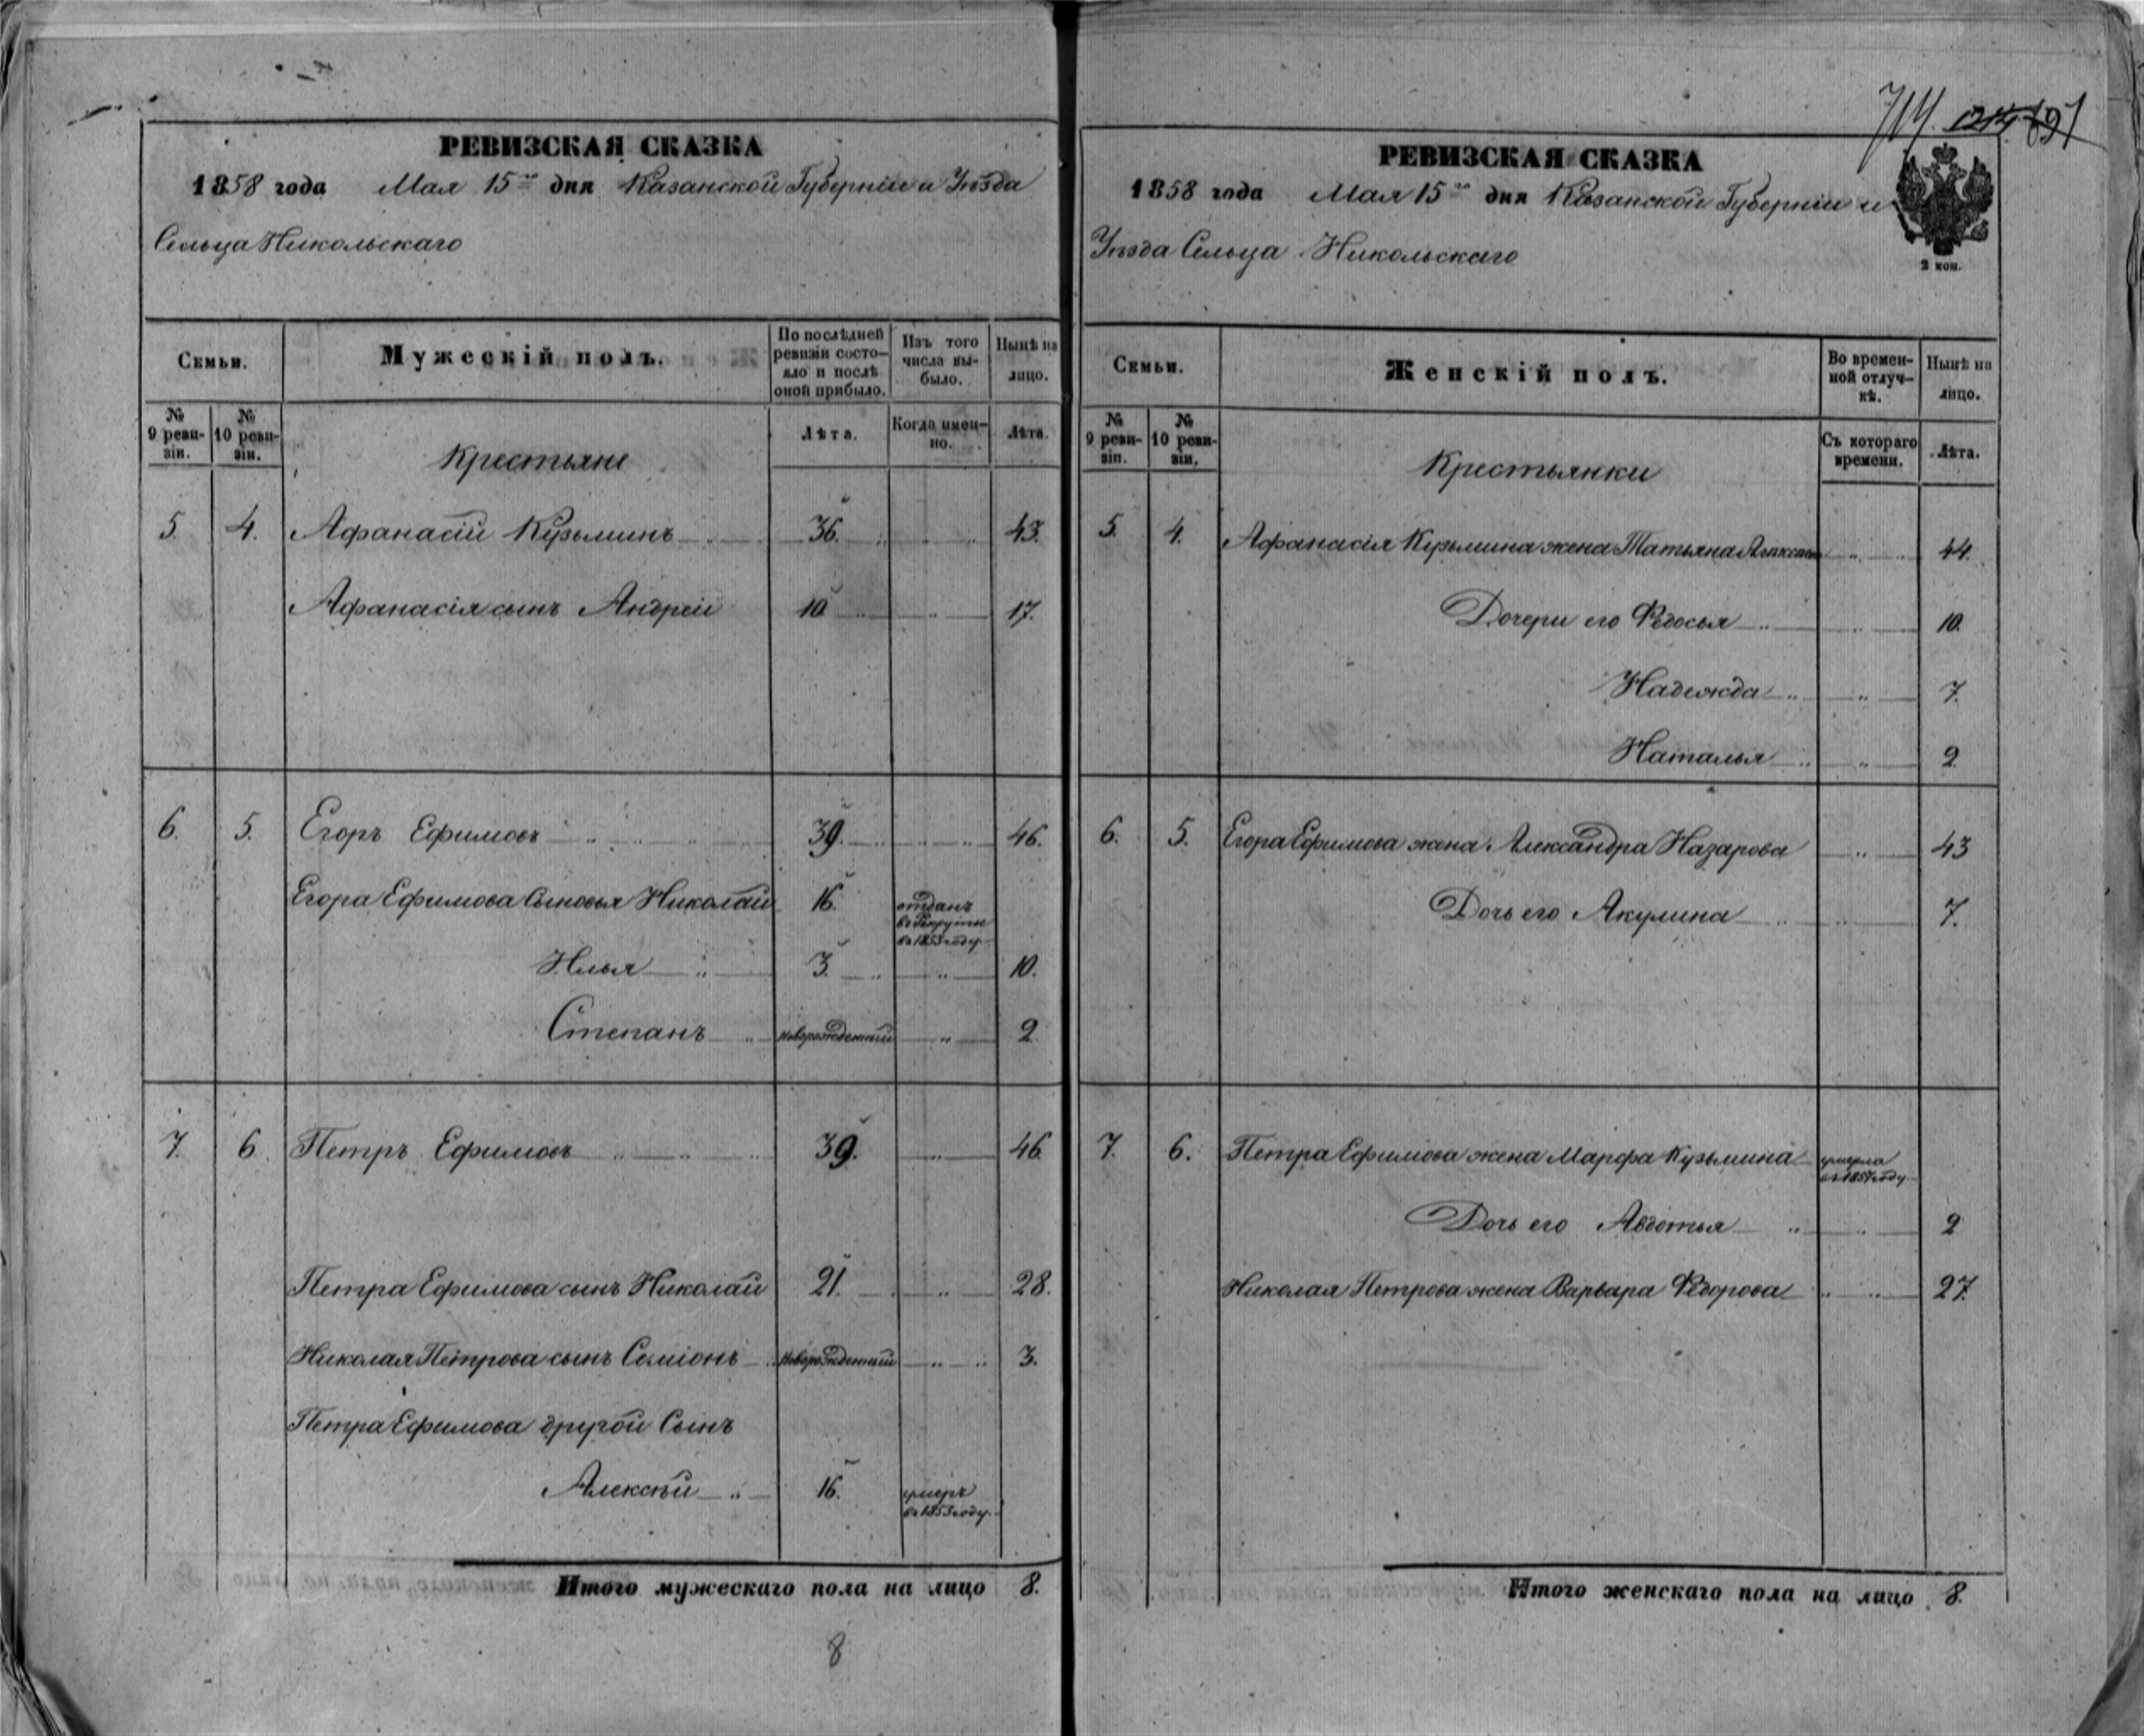 РЕВИЗСКАЯ СКАЗКА
1858 года Мая 15го дня Казанской Губерніи и Уѣзда
Сельца Никольскаго
Семьи.
Мужескій полъ.
По послѣдней ревизіи состояло и послѣ оной прибыло.
Изъ того числа выбыло.
Нынѣ на лицо.
№ 9 ревизіи.
№ 10 ревизіи.
Крестьяне
Лѣта.
Когда именно.
Лѣта.
5 4. Афанасій Кузьминъ 36. 43.
Афанасія сынъ Андрей 10 17.
6. 5. Егоръ Ефимовъ 39. 46.
Егора Ефимова Сыновья Николай 16. отданъ
въ Рекруты
въ 1853 году
Илья 3. 10.
Степанъ новорожденный 2
7. 6 Петръ Ефимовъ 39. 46
Петра Ефимова сынъ Николай 21. 28.
Николая Петрова сынъ Семіонъ новорожденный 3.
Петра Ефимова другой Сынъ
Алексѣй 16. умеръ
въ 1853 году
Итого мужескаго пола на лицо 8.
8
714
РЕВИЗСКАЯ СКАЗКА
1858 года Мая 15го дня Казанской Губерніи и
Уѣзда Сельца Никольскаго
2 коп.
Семьи.
Женскій полъ.
Во временной отлучкѣ.
Нынѣ на лицо.
№ 9 ревизіи.
№ 10 ревизіи.
Крестьянки
Съ котораго времени.
Лѣта.
5. 4. Афанасія Кузьмина жена Татьяна 44.
Дочери его Федосья 10.
Надежда 7.
Наталья 2
6. 5. Егора Ефимова жена Александра Назарова 43
Дочь его Акулина 7.
7. 6. Петра Ефимова жена Марфа Кузьмина умерла
въ 1857 году
Дочь его Авдотья 2
Николая Петрова жена Варвара Федорова 27.
Итого женскаго пола на лицо 8.